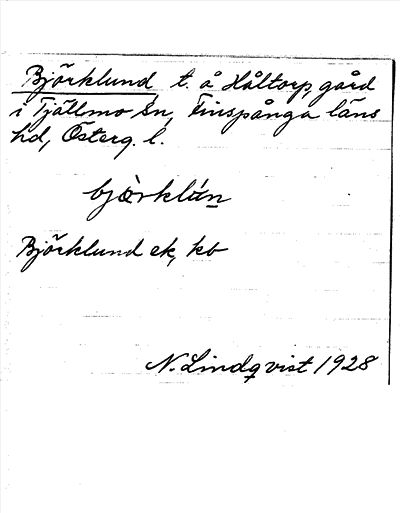 Björklund t. å Håltorp, gård
i Tjällmo sn, Finspånga läns
hd, Österg. l.
bjö̀rklún
Björklund ek, kb
N. Lindqvist 1928